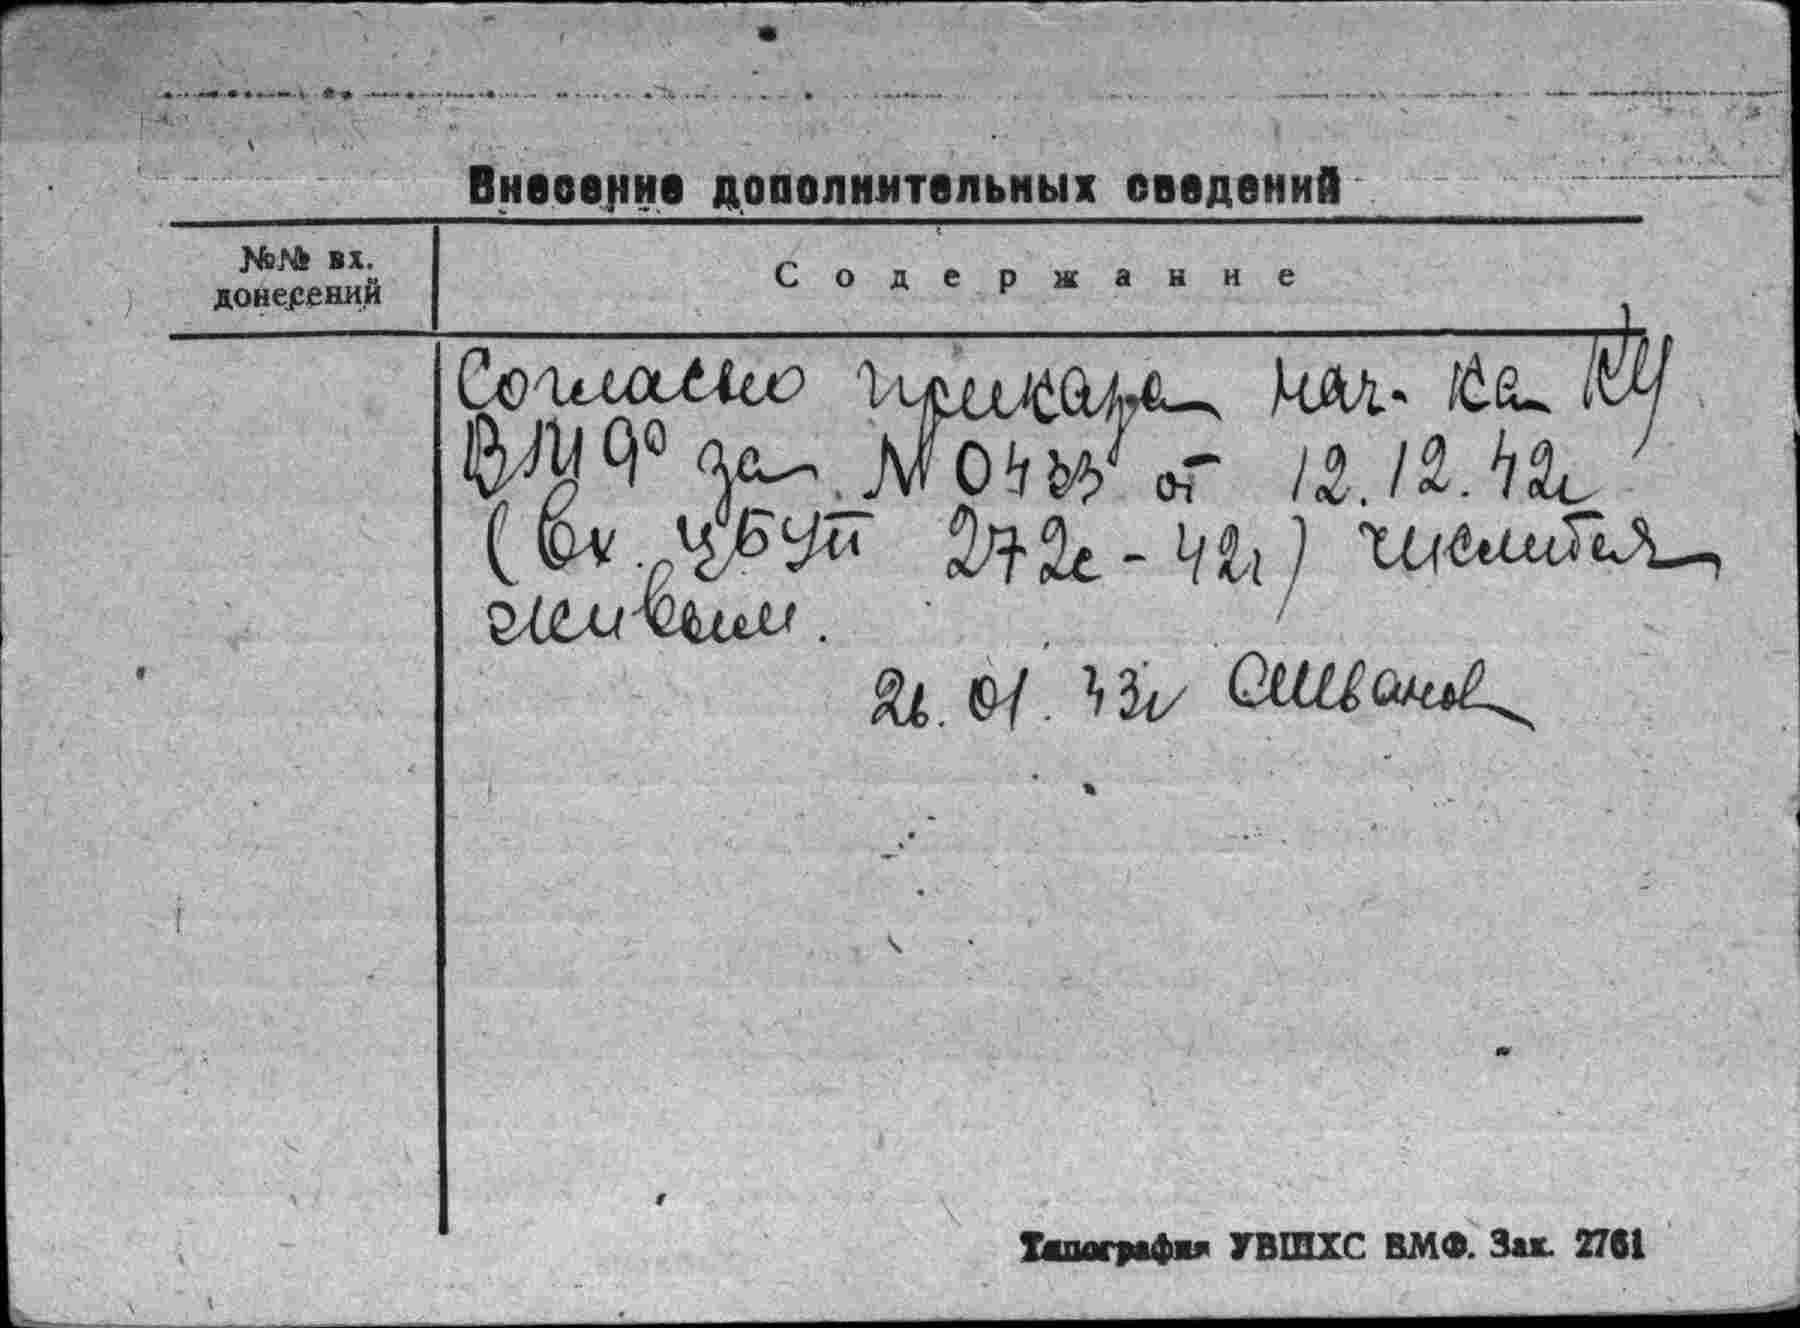 Внесение дополнительных сведений
№№ вх.
донесений
Содержание
Согласно приказа нач-ка КУ
ВМФ за № 0433 от 12.12.42г
(Вх. ЦБУП 272с - 42г) числится
живым.
26.01.43г СИванов
Типография УВШХС ВМФ. Зак. 2761